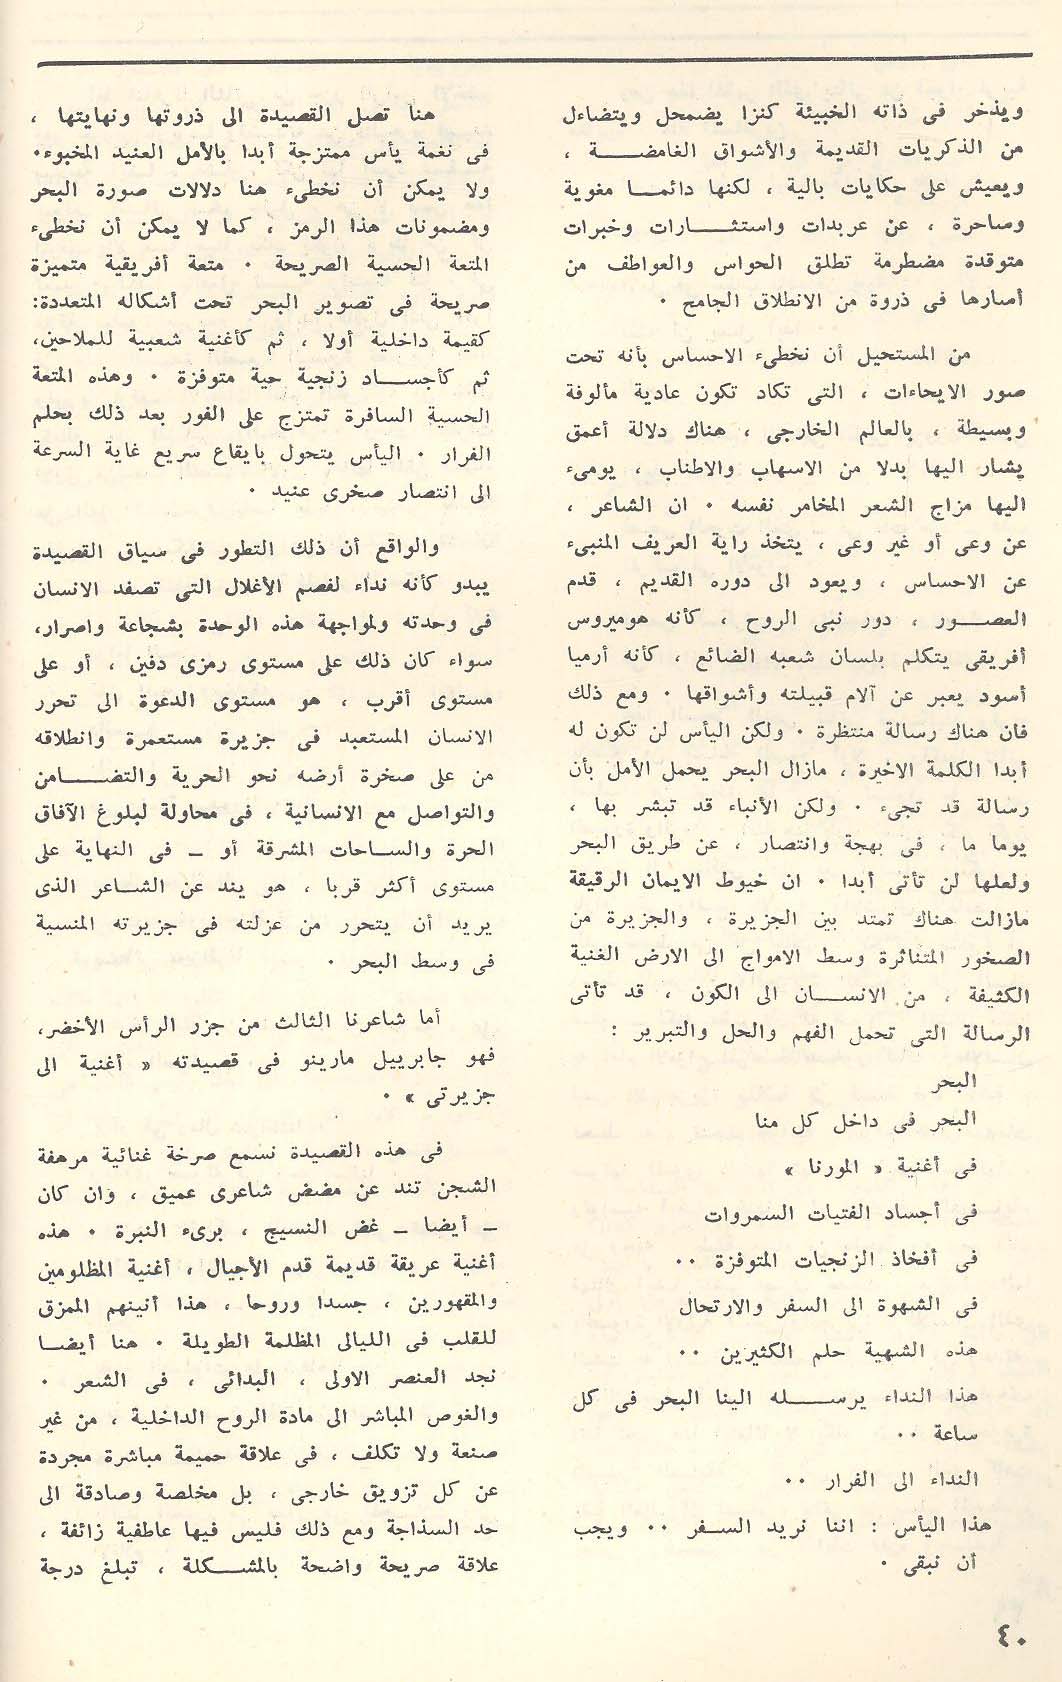 ويذخر فى ذاته الخبيئة كنزا يضمحل ويتضاءل
من الذكريات القديمة والأشواق الغامضة ،
ويعيش على حكايات بالية ، لكنها دائما مغوية
وصاحرة ، عن عربدات واستثارات وخبرات
متوقدة مضطرمة تطلق الحواس والعواطف من
أصارها فى ذروة من الانطلاق الجامح ٠
من المستحيل أن نخطىء الاحساس بأنه تحت
صور الايحاءات ، التى تكاد تكون عادية مألوفة
وبسيطة ، بالعالم الخارجى ، هناك دلالة أعمق
يشار اليها بدلا من الاسهاب والاطناب ، يومىء
اليها مزاج الشعر المخامر نفسه ٠ ان الشاعر ،
عن وعى أو غير وعى ، يتخذ راية العريف المنبىء
عن الاحساس ، ويعود الى دوره القديم ، قدم
العصور ، دور نبى الروح ، كأنه هوميروس
أفريقى يتكلم بلسان شعبه الضائع ، كأنه أرميا
أسود يعبر عن آلام قبيلته وأشواقها ٠ ومع ذلك
فان هناك رسالة منتظرة ٠ ولكن اليأس لن تكون له
أبدا الكلمة الاخيرة ، مازال البحر يحمل الأمل بأن
رسالة قد تجىء ٠ ولكن الأنباء قد تبشر بها ،
يوما ما ، فى بهجة وانتصار ، عن طريق البحر
ولعلها لن تأتى أبدا ٠ ان خيوط الايمان الرقيقة
مازالت هناك تمتد بين الجزيرة ، والجزيرة من
الصخور المتناثرة وسط الامواج الى الارض الغنية
الكثيفة ، من الانسان الى الكون ، قد تأتى
الرسالة التى تحمل الفهم والحل والتبرير :
البحر
البحر فى داخل كل منا
فى أغنية « المورنا »
فى أجساد الفتيات السمروات
فى أفخاذ الزنجيات المتوفزة ٠٠
فى الشهوة الى السفر والارتحال
هذه الشهية حلم الكثيرين ٠٠
هذا النداء يرسله الينا البحر فى كل
ساعة ٠٠
النداء الى الفرار ٠٠
هذا اليأس : اننا نريد السفر ٠٠ ويجب
أن نبقى ٠
هنا تصل القصيدة الى ذروتها ونهايتها ،
فى نغمة يأس ممتزجة أبدا بالأمل العنيد المخبوء٠
ولا يمكن أن نخطىء هنا دلالات صورة البحر
ومضمونات هذا الرمز ، كما لا يمكن أن نخطىء
المتعة الحسية الصريحة ٠ متعة أفريقية متميزة
صريحة فى تصوير البحر تحت أشكاله المتعددة:
كقيمة داخلية أولا ، ثم كأغنية شعبية للملاحين،
ثم كأجساد زنجية حية متوفزة ٠ وهذه المتعة
الحسية السافرة تمتزج على الفور بعد ذلك بحلم
الفرار ٠ اليأس يتحول بايقاع سريع غاية السرعة
الى انتصار صخرى عنيد ٠
والواقع أن ذلك التطور فى سياق القصيدة
يبدو كأنه نداء لفصم الأغلال التى تصفد الانسان
فى وحدته ولمواجهة هذه الوحدة بشجاعة واصرار،
سواء كان ذلك على مستوى رمزى دفين ، أو على
مستوى أقرب ، هو مستوى الدعوة الى تحرر
الانسان المستعبد فى جزيرة مستعمرة وانطلاقه
من على صخرة أرضه نحو الحرية والتضامن
والتواصل مع الانسانية ، فى محاولة لبلوغ الآفاق
الحرة والساحات المشرقة أو – فى النهاية على
مستوى أكثر قربا ، هو يند عن الشاعر الذى
يريد أن يتحرر من عزلته فى جزيرته المنسية
فى وسط البحر ٠
أما شاعرنا الثالث من جزر الرأس الأخضر،
فهو جابرييل مارينو فى قصيدته « أغنية الى
جزيرتى » ٠
فى هذه القصيدة نسمع صرخة غنائية مرهفة
الشجن تند عن مضض شاعرى عميق ، وان كان
– أيضا – غض النسيج ، برىء النبرة ٠ هذه
أغنية عريقة قديمة قدم الأجيال ، أغنية المظلومين
والمقهورين ، جسدا وروحا ، هذا أنينهم الممزق
للقلب فى الليالى المظلمة الطويلة ٠ هنا أيضا
نجد العنصر الاولى ، البدائى ، فى الشعر ٠
والغوص المباشر الى مادة الروح الداخلية ، من غير
صنعة ولا تكلف ، فى علاقة حميمة مباشرة مجردة
عن كل تزويق خارجى ، بل مخلصة وصادقة الى
حد السذاجة ومع ذلك فليس فيها عاطفية زائفة ،
علاقة صريحة واضحة بالمشكلة ، تبلغ درجة
٤٠